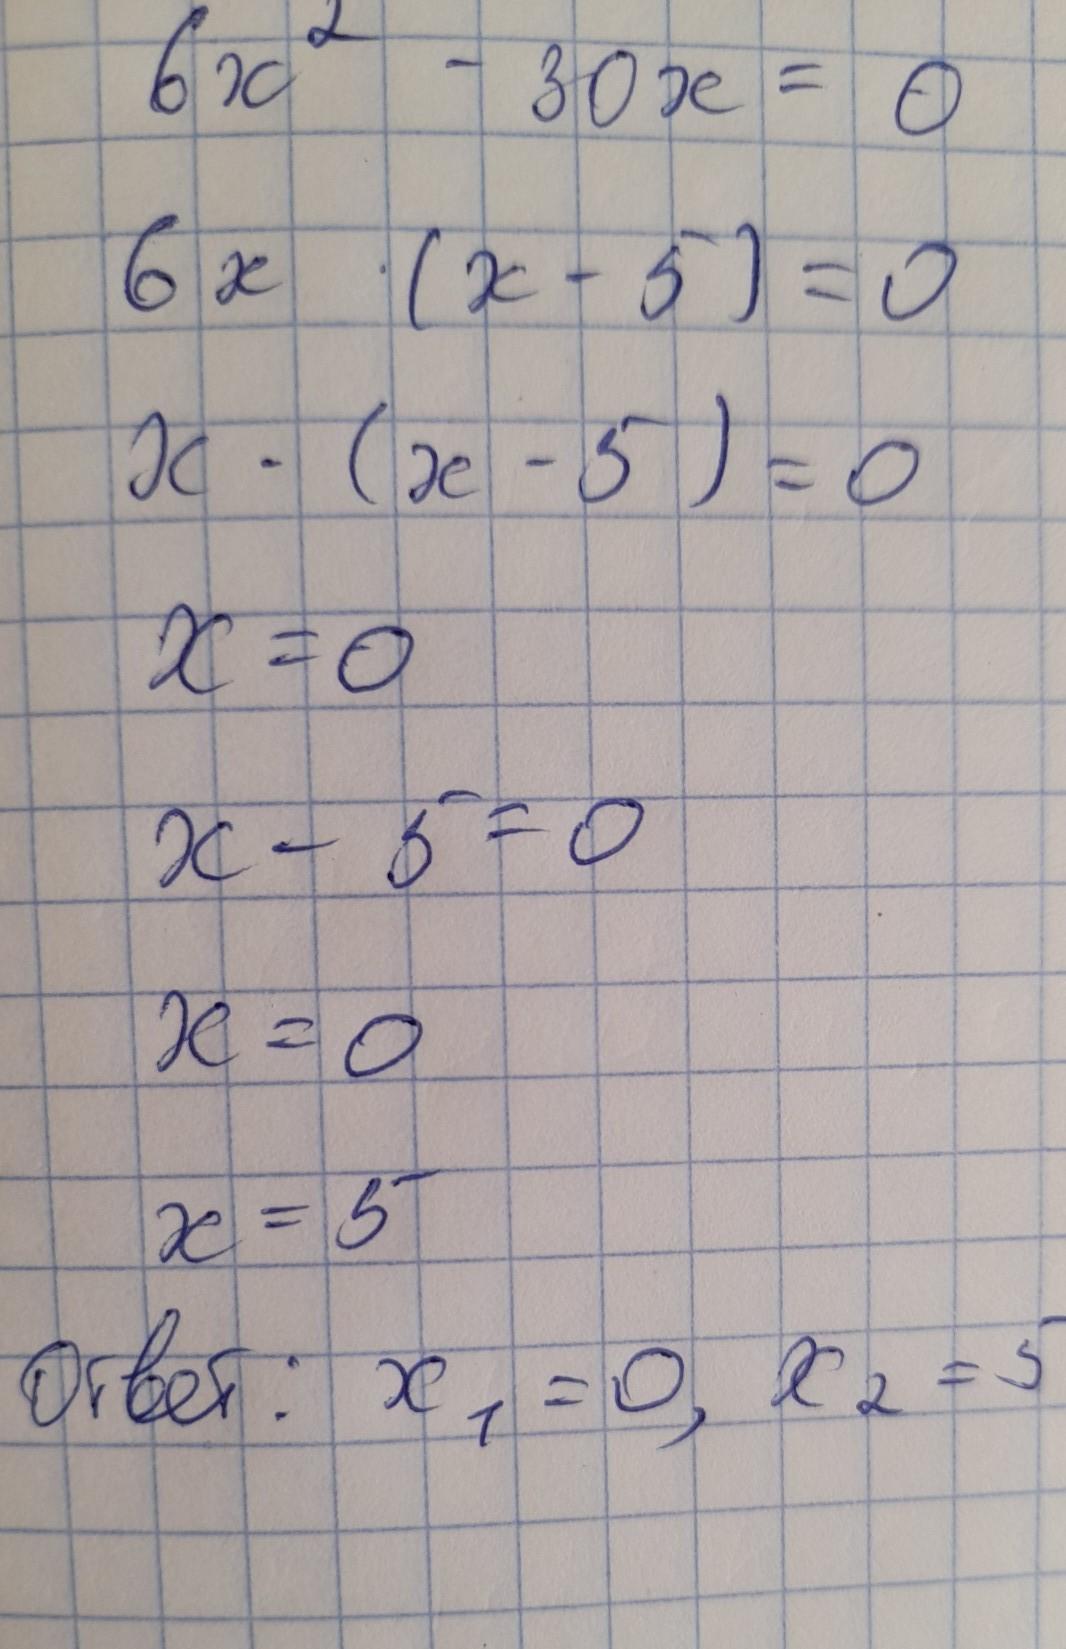 6x² - 30x = 0
6x · (x - 5) = 0
x · (x - 5) = 0
x = 0
x - 5 = 0
x = 0
x = 5
Ответ: x₁ = 0, x₂ = 5